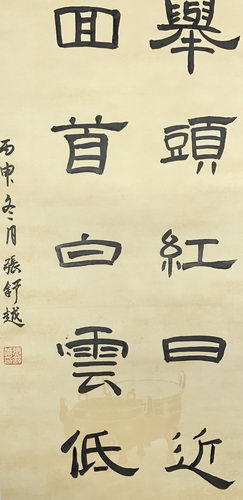 舉頭紅日近
回首白雲低
丙申冬月張舒越